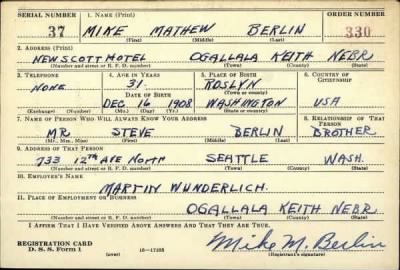 SERIAL NUMBER 1. NAME (Print) ORDER NUMBER
37 MIKE MATHEW BERLIN 330
(First) (Middle) (Last)
2. ADDRESS (Print)
NEW SCOTT MOTEL OGALLALA KEITH NEBR
(Number and street or R. F. D. number) (Town) (County) (State)
3. TELEPHONE 4. AGE IN YEARS 5. PLACE OF BIRTH 6. COUNTRY OF CITIZENSHIP
NONE 31 ROSLYN
DATE OF BIRTH (Town or county)
DEC 16 1908 WASHINGTON USA
(Exchange) (Number) (Mo.) (Day) (Yr.) (State or country)
7. NAME OF PERSON WHO WILL ALWAYS KNOW YOUR ADDRESS 8. RELATIONSHIP OF THAT PERSON
MR STEVE BERLIN BROTHER
(Mr., Mrs., Miss) (First) (Middle) (Last)
9. ADDRESS OF THAT PERSON
733 12TH AVE NORTH SEATTLE WASH.
(Number and street or R. F. D. number) (Town) (County) (State)
10. EMPLOYER'S NAME
MARTIN WUNDERLICH.
11. PLACE OF EMPLOYMENT OR BUSINESS
OGALLALA KEITH NEBR.
(Number and street or R. F. D. number) (Town) (County) (State)
I AFFIRM THAT I HAVE VERIFIED ABOVE ANSWERS AND THAT THEY ARE TRUE.
REGISTRATION CARD
D. S. S. Form 1 (over) 16—17105 Mike M. Berlin
(Registrant's signature)